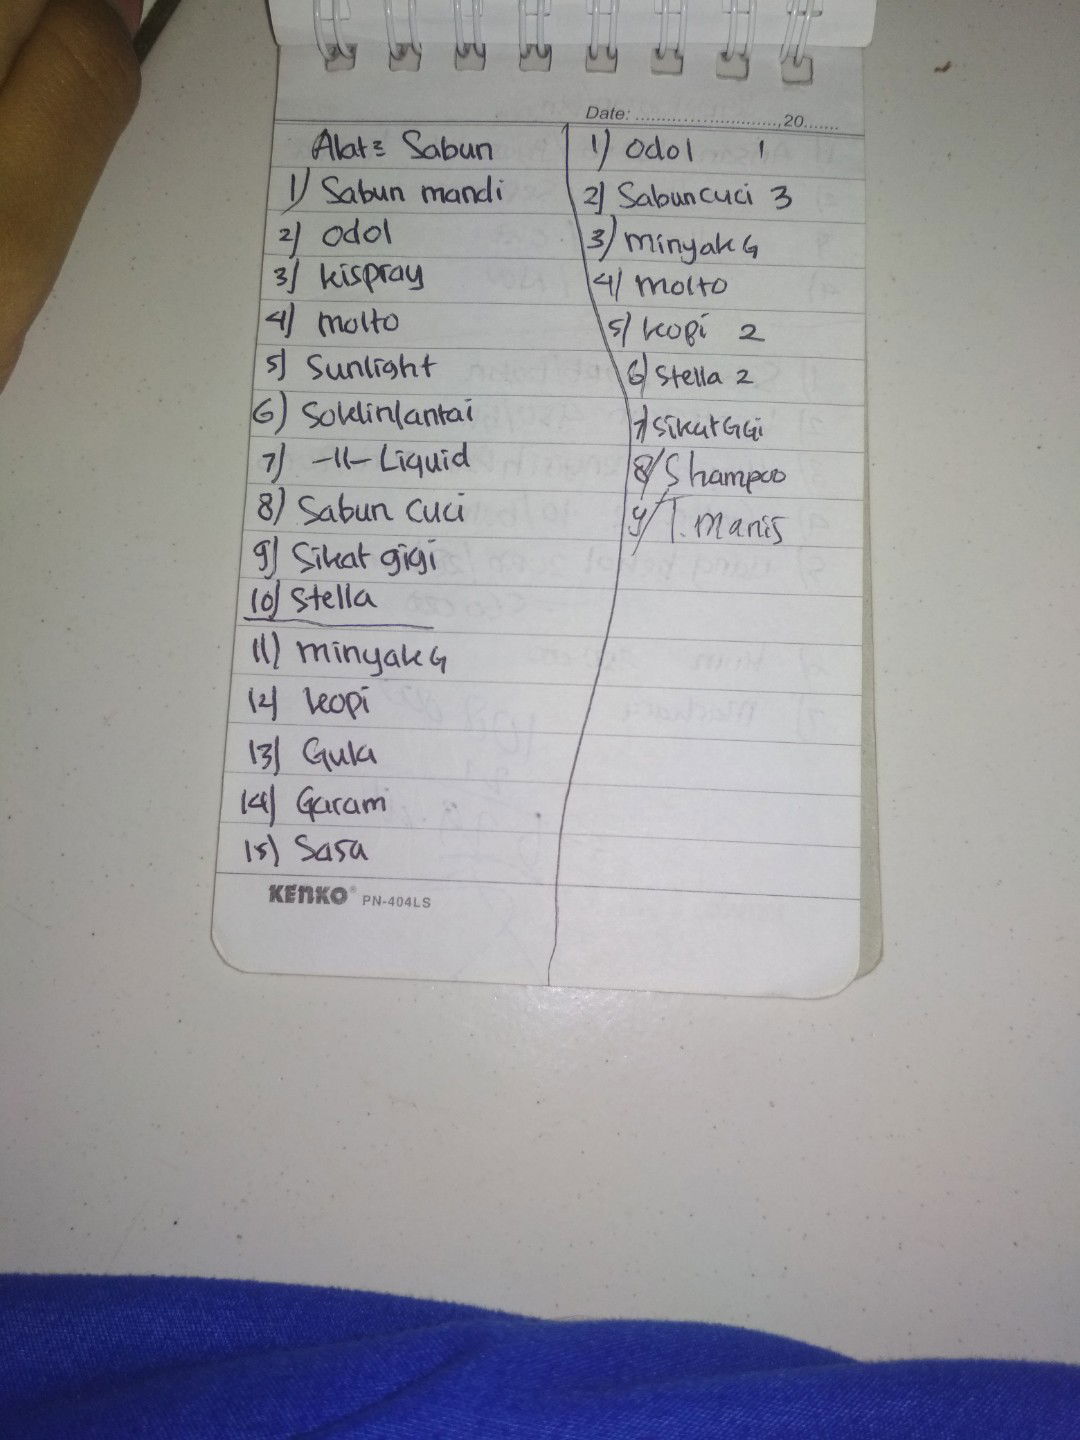 Date: ..........................,20.......
Alat2 Sabun
1) Sabun mandi
2) Odol
3) Kispray
4) Molto
5) Sunlight
6) Soklinlantai
7) -11- Liquid
8) Sabun Cuci
9) Sikat gigi
10) Stella
11) MinyakG
12) Kopi
13) Gula
14) Garam
15) Sasa
KENKO® PN-404LS
1) Odol 1
2) Sabuncuci 3
3) MinyakG
4) Molto
5) Kopi 2
6) Stella 2
7) SikatGGi
8) Shampoo
9) T. Manis